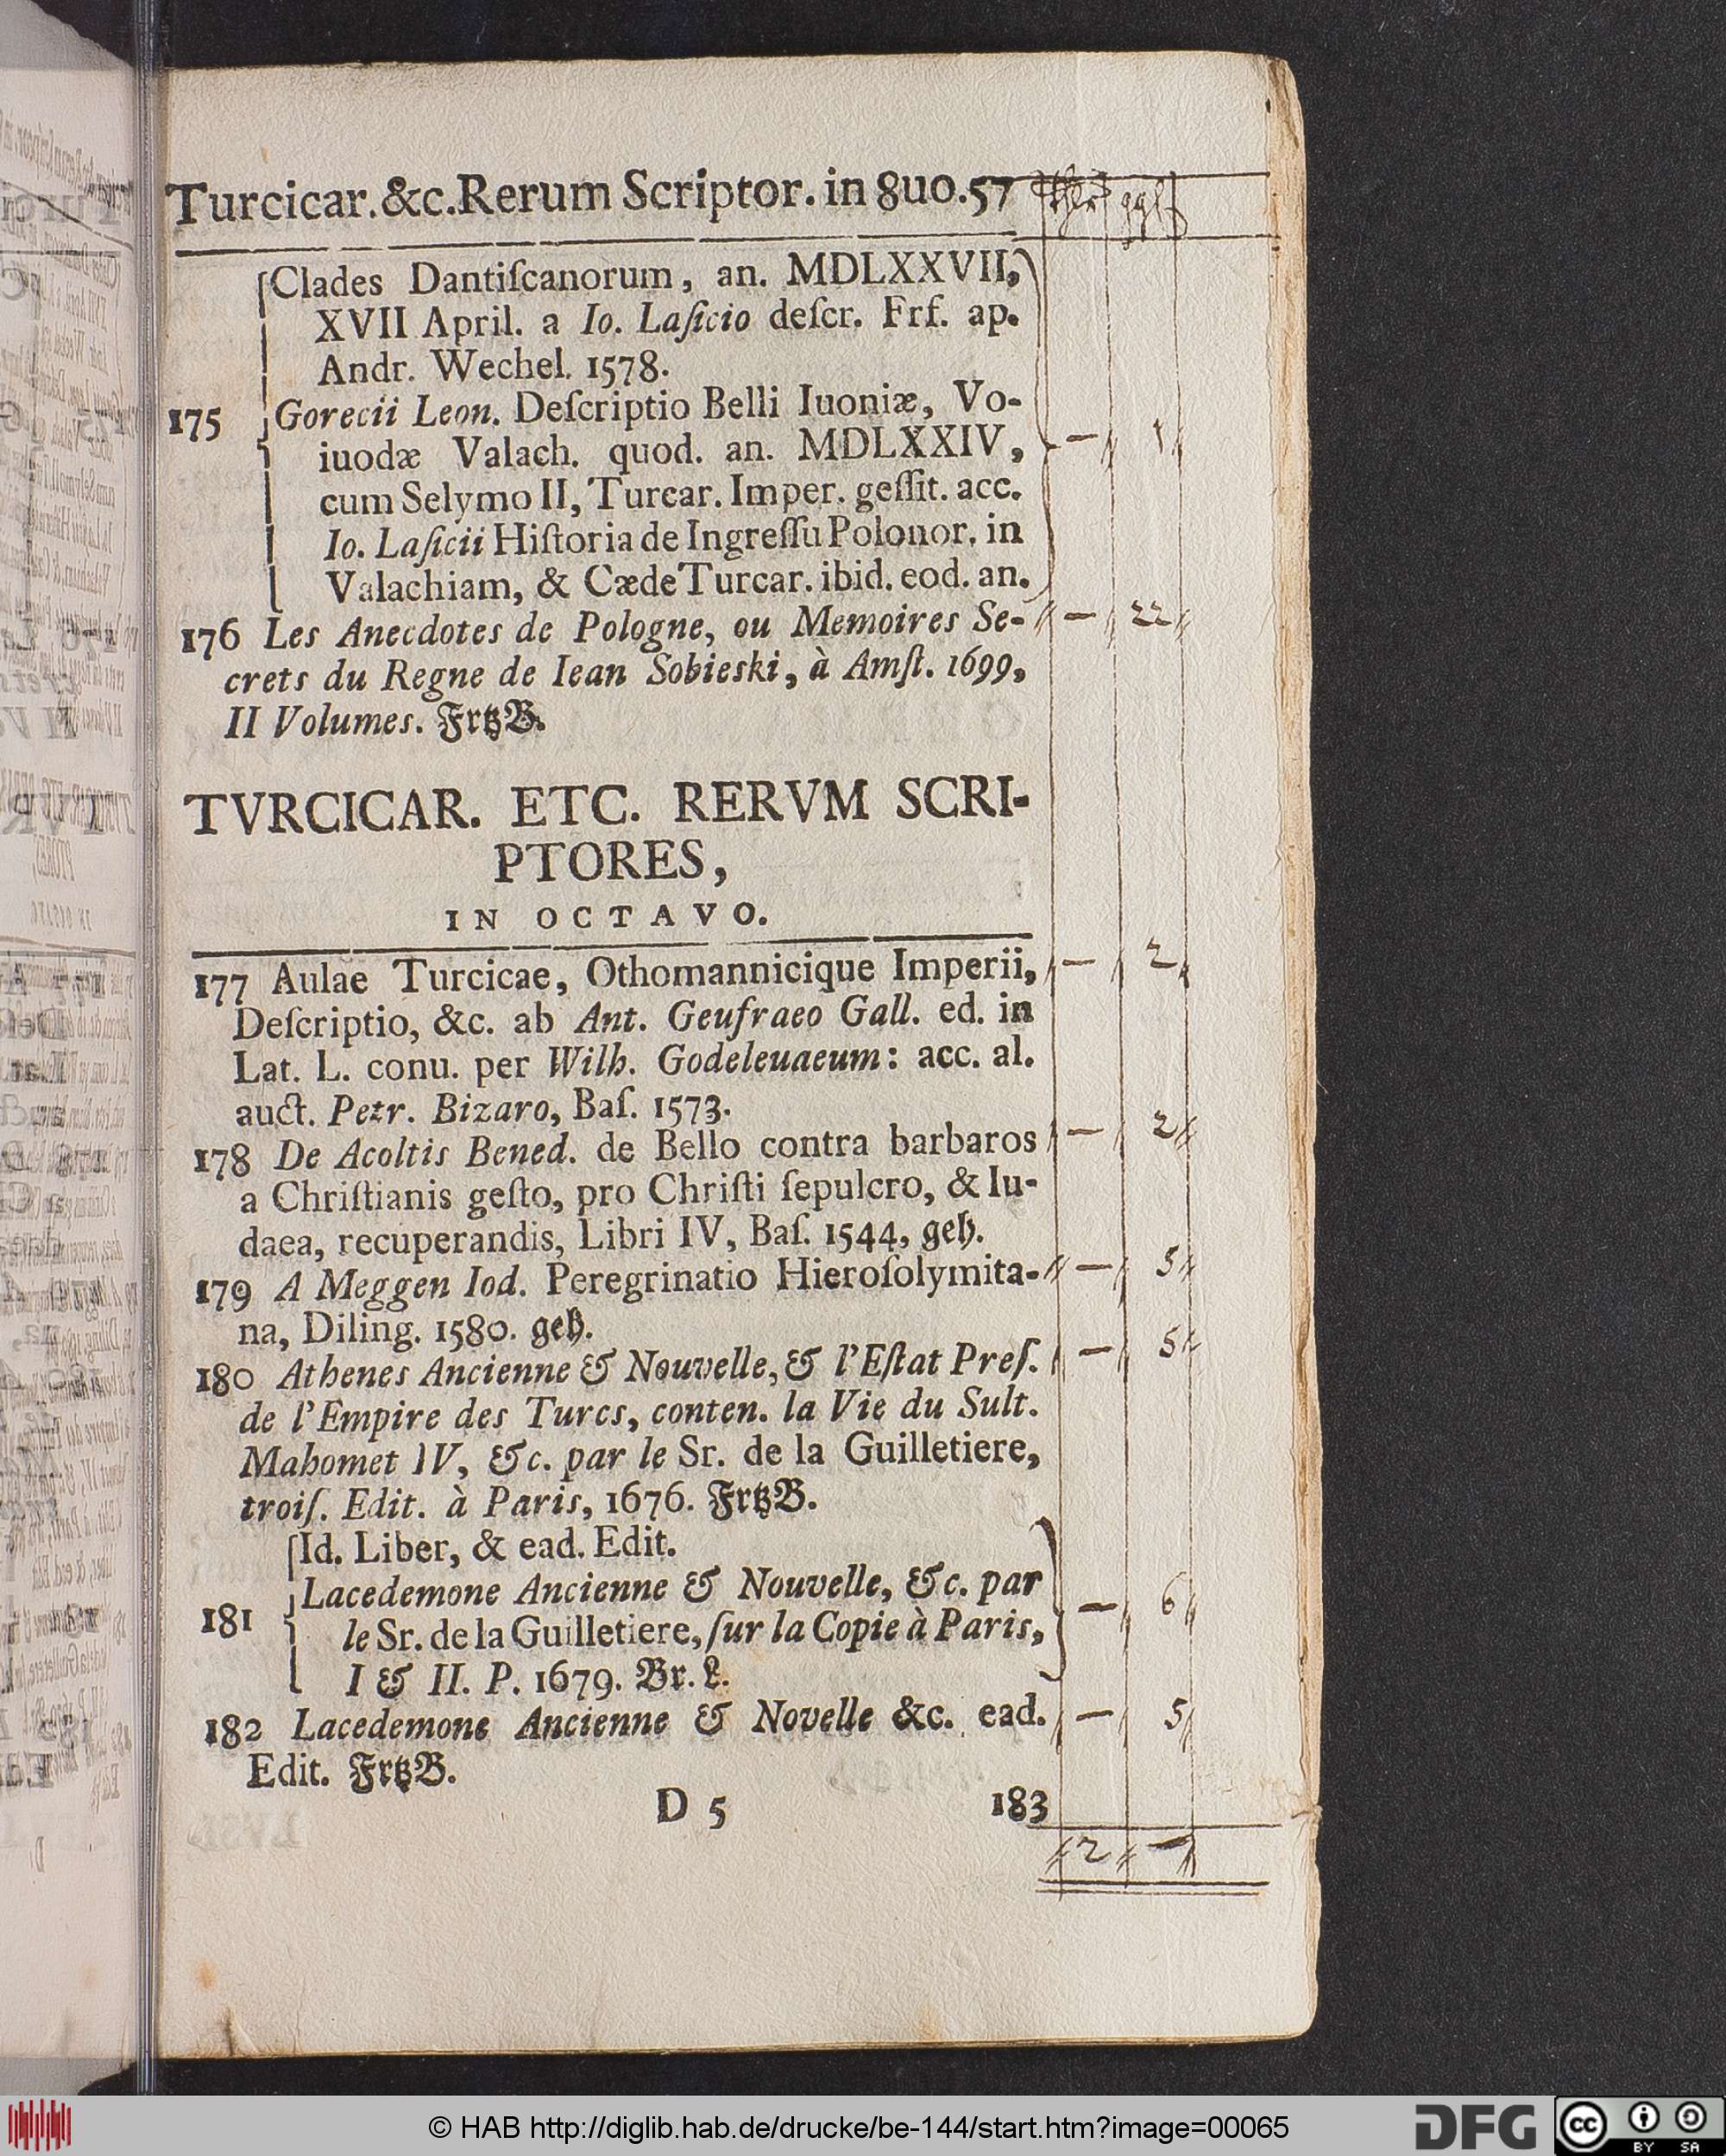 Turcicar.&c.Rerum Scriptor. in 8uo.57 thlr ggl
Clades Dantiſcanorum, an. MDLXXVII,
XVII April. a Io. Laſicio deſcr. Frf. ap.
Andr. Wechel. 1578.
175 Gorecii Leon. Deſcriptio Belli Iuoniæ, Vo-
iuodæ Valach. quod. an. MDLXXIV, — 1
cum Selymo II, Turcar. Imper. geſſit. acc.
Io. Laſicii Hiſtoria de Ingreſſu Polonor. in
Valachiam, & Cæde Turcar. ibid. eod. an.
176 Les Anecdotes de Pologne, ou Memoires Se- — 22
crets du Regne de Iean Sobieski, à Amſt. 1699,
II Volumes. FrtzB.
TVRCICAR. ETC. RERVM SCRI-
PTORES,
IN OCTAVO.
177 Aulae Turcicae, Othomannicique Imperii, — 2
Deſcriptio, &c. ab Ant. Geufraeo Gall. ed. in
Lat. L. conu. per Wilh. Godeleuaeum: acc. al.
auct. Petr. Bizaro, Baſ. 1573.
178 De Acoltis Bened. de Bello contra barbaros — 2
a Chriſtianis geſto, pro Chriſti ſepulcro, & Iu-
daea, recuperandis, Libri IV, Baſ. 1544, geh.
179 A Meggen Iod. Peregrinatio Hieroſolymita- — 5
na, Diling. 1580. geh.
180 Athenes Ancienne & Nouvelle, & l'Eſtat Preſ. — 5
de l'Empire des Turcs, conten. la Vie du Sult.
Mahomet IV, &c. par le Sr. de la Guilletiere,
troiſ. Edit. à Paris, 1676. FrtzB.
Id. Liber, & ead. Edit.
Lacedemone Ancienne & Nouvelle, &c. par
181 le Sr. de la Guilletiere, ſur la Copie à Paris, — 6
I & II. P. 1679. Br. L.
182 Lacedemone Ancienne & Novelle &c. ead. — 5
Edit. FrtzB.
D 5 183
2 —
© HAB http://diglib.hab.de/drucke/be-144/start.htm?image=00065 DFG cc BY SA